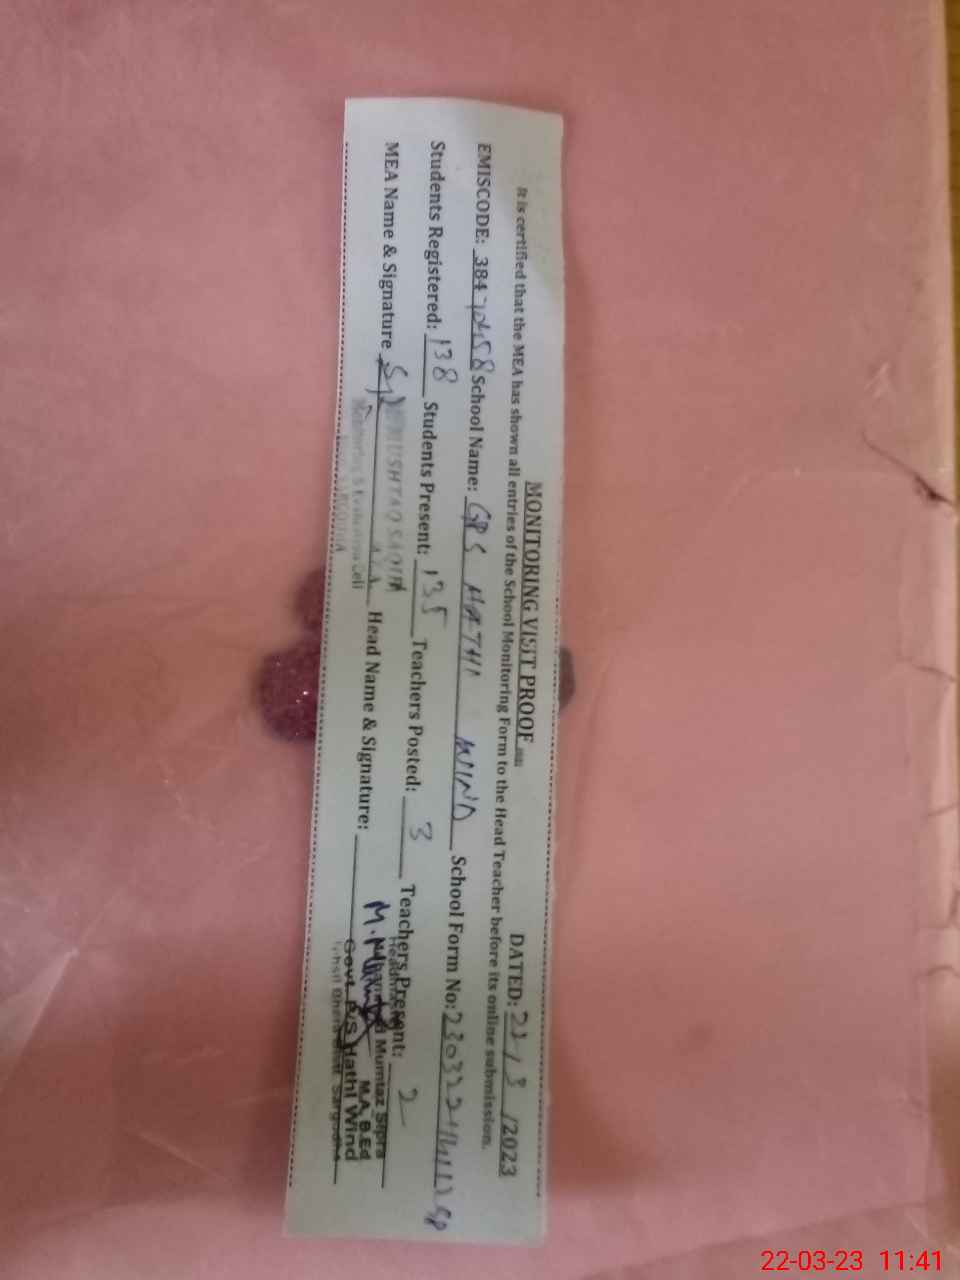 MONITORING VISIT PROOF
DATED: 22/3/2023
It is certified that the MEA has shown all entries of the School Monitoring Form to the Head Teacher before its online submission.
EMISCODE: 38470458 School Name: GPS HATHI WIND School Form No:
Students Registered: 138 Students Present: 135 Teachers Posted: 3 Teachers Present: 2
MEA Name & Signature Head Name & Signature:
MUSHTAQ
Monitoring & Evaluation Cell
Mumtaz Sipra
M.A, B.Ed
Govt. P/S Hathi Wind
Sargodha
22-03-23 11:41